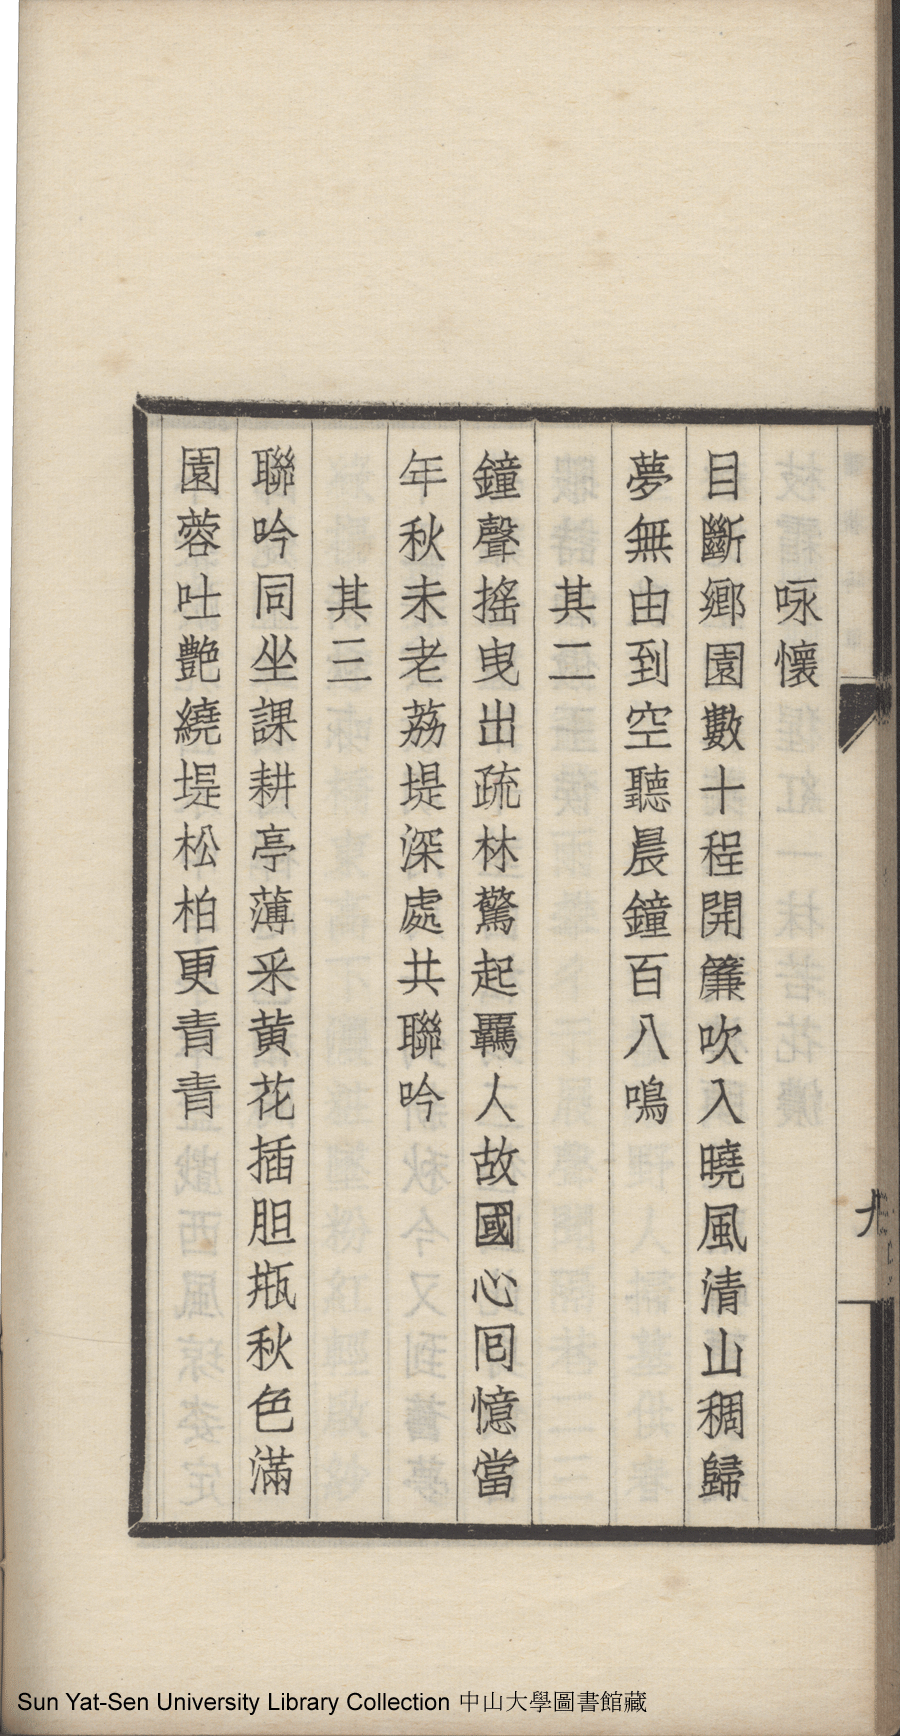 咏懷
目斷鄉園數十程開簾吹入曉風清山稠歸
夢無由到空聽晨鐘百八鳴
其二
鐘聲搖曳出疏林驚起羈人故國心囘憶當
年秋未老荔堤深處共聯吟
其三
聯吟同坐課耕亭薄采黃花插胆瓶秋色滿
園蓉吐艷繞堤松柏更青青
九
Sun Yat-Sen University Library Collection 中山大學圖書館藏